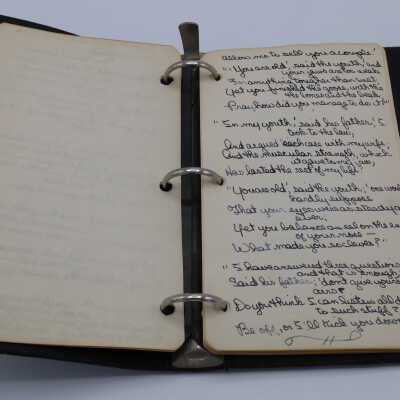 allow me to sell you a couple?'
"'You are old', said the youth, 'and
your jaws are too weak
For anything tougher than suet
Yet you finished the goose, with the
bones and the beak,
Pray, how did you manage to do it?"
"In my youth', said his father, 'I
took to the law,
And argued each case with my wife,
And the muscular strength, which
it gave to my jaw,
Has lasted the rest of my life!
"'You are old', said the youth, 'one would
hardly suppose
That your eye was as steady as
ever,
Yet you balance an eel on the end
of your nose —
What made you so clever?"
"I have answered three questions
and that is enough
Said his father, 'don't give yourself
airs!
Do you think I can listen all day
to such stuff?
Be off, or I'll kick you down